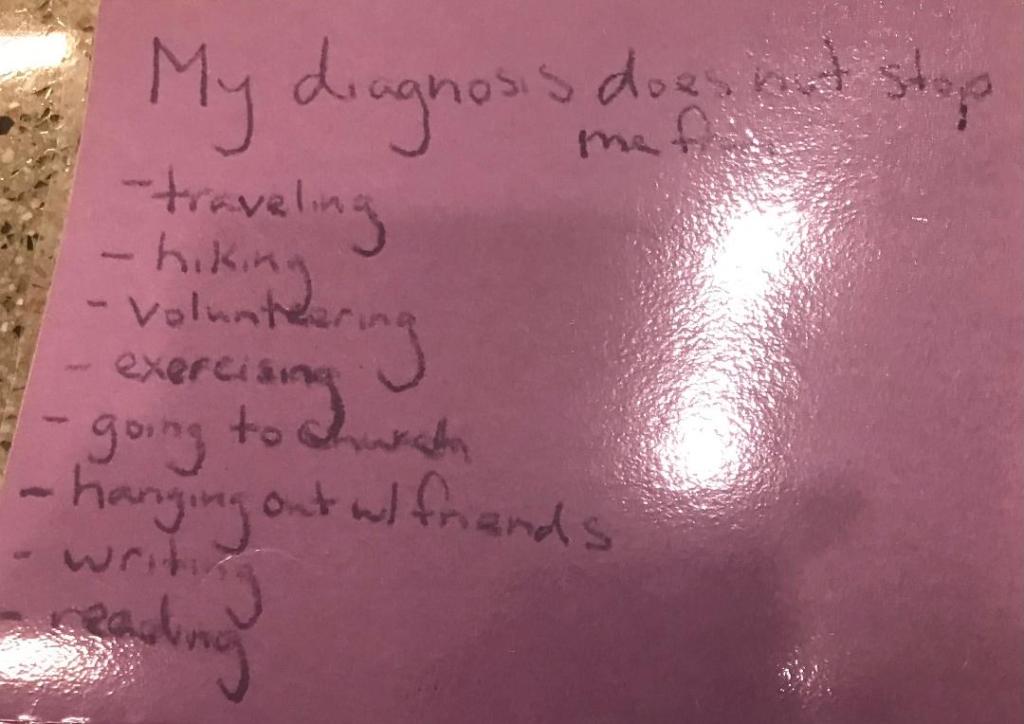 My diagnosis does not stop
me from
- traveling
- hiking
- volunteering
- exercising
- going to church
- hanging out w/ friends
- writing
- reading